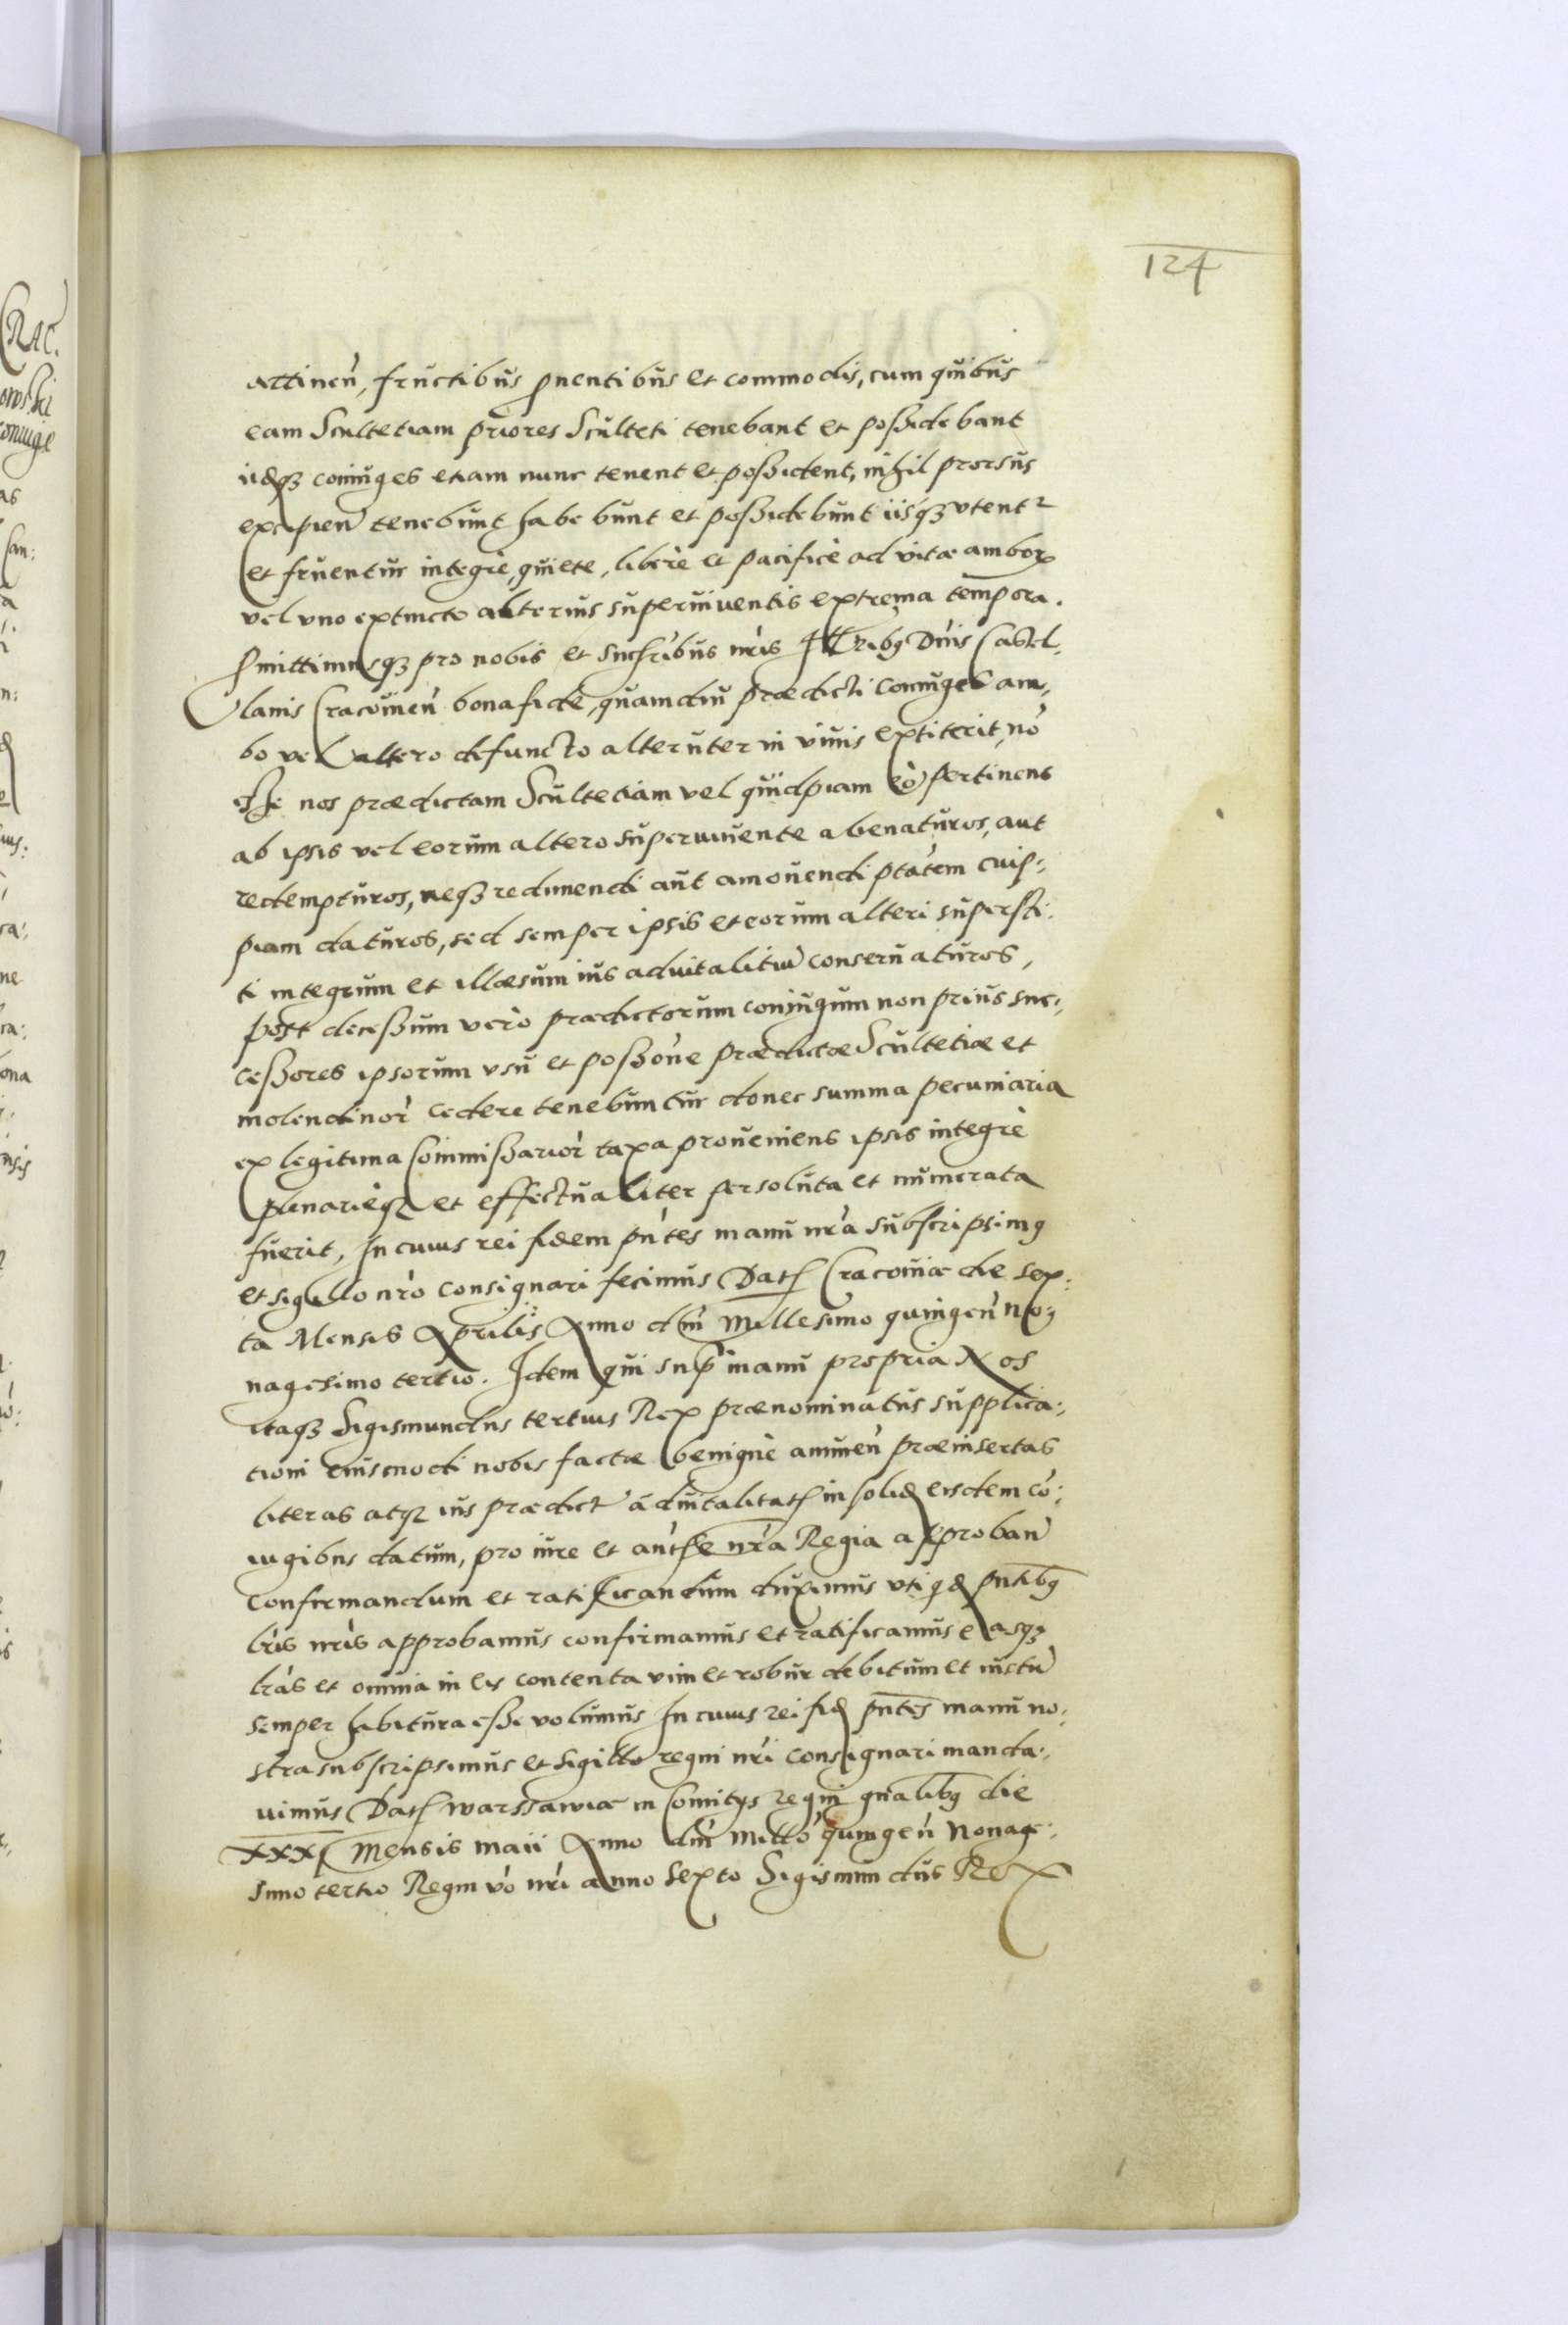 124
attinen̄, fructibus ꝓuentibus et commodis, cum quibus
eam Scultetiam priores Sculteti tenebant et possidebant
iidemqʒ coniuges etiam nunc tenent et possident, nihil prorsus
excipien̄ tenebunt habebunt et possidebunt iisqʒ utentr
et fruentur integrè, quiete, liberè et pacificè ad vitae amborꝝ
vel uno extincto alterius superuiuentis extrema tempora.
ꝓmittimusqʒ pro nobis et succribus nr̄is Illribꝰ Dn̄is Castel-
lanis Cracouien̄ bona fide, quamdiu praedicti coniuges am-
bo vel altero defuncto alteruter in viuis extiterit, nō
esse nos praedictam Scultetiam vel quidpiam eò pertinens
ab ipsis vel eorum altero superuiuente abenaturos, aut
redempturos, neqʒ redimendi aut amouendi ptātem cuip-
piam daturos, sed semper ipsis et eorum alteri supersti-
ti integrum et illaesum ius aduitalitiū conseruaturos,
post decessum verò praedictorum coniugum non prius suc-
cessores ipsorum usu et possōne praedictae Scultetiae et
molendinor̄ cedere tenebuntur donec summa pecuniaria
ex legitima Commissarior̄ taxa proueniens ipsis integrè
plenarièqʒ et effectualiter persoluta et numerata
fuerit, In cuius rei fidem pn̄tes manu nr̄a subscripsimꝰ
et sigillo nr̄o consignari fecimus Dat Cracouiae die sex-
ta Mensis Aprilis Anno dn̄i Millesimo quingen̄ No-
nagesimo tertio. Idem qui supr̄ manu propria Nos
itaqʒ Sigismundus tertius Rex praenominatus supplica-
tioni eiusmodi nobis factae benignè annuen̄ praeinsertas
literas atqʒ ius praedict aduitalitat in solid eisdem cō-
iugibus datum, pro iure et aut̄he nr̄a Regia approban̄
confirmandum et ratificandum duximus utiqʒ pn̄tibꝰ
lr̄is nr̄is approbamus confirmamus et ratificamus easqʒ
lr̄as et omnia in eis contenta vim et robur debitum et iustū
semper habitura esse volumus In cuius rei fid pn̄tes manu no-
stra subscripsimus et sigillo regni nr̄i consignari manda-
uimus Dat Warssawiae in Comitijs regni gn̄alibꝰ die
XXXI Mensis Maii Anno dn̄i Millō quingen̄ Nonage-
simo tertio Regni vō nr̄i anno Sexto Sigismundus Rex